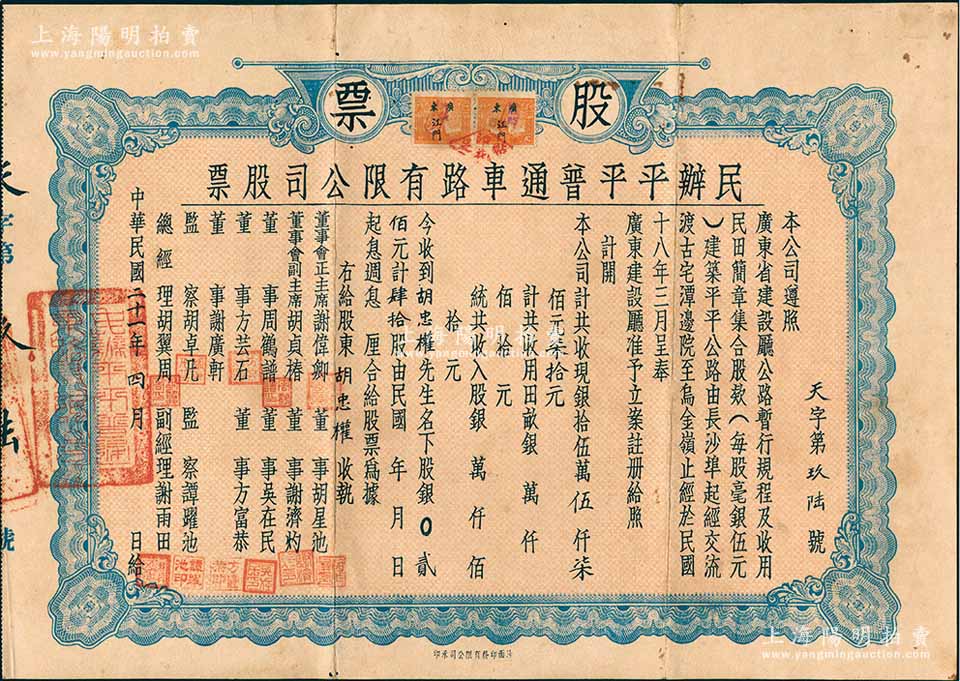 上海陽明拍賣
www.yangmingauction.com
股票
廣東
江門
廣東
江門
民辦平平普通車路有限公司股票
天字第玖陸號
本公司遵照
廣東省建設廳公路暫行規程及收用
民田簡章集合股欵(每股毫銀伍元
)建築平平公路由長沙埠起經交流
渡古宅潭邊院至烏金嶺止經於民國
十八年三月呈奉
廣東建設廳准予立案註册給照
計開
本公司計共收現銀拾伍萬伍仟柒
佰三柒拾元
計共收用田畝銀 萬 仟
佰 拾 元
統共收入股銀 萬 仟 佰
拾 元
今收到胡忠權先生名下股銀0貳
佰元計肆拾股由民國 年 月 日
起息週息 厘合給股票爲據
右給股東胡忠權收執
董事會正主席謝偉卿 董事胡星池
董事會副主席胡貞椿 董事謝濟灼
董事周鶴譜 董事吳在民
董事方芸石 董事方富恭
董事謝廣軒
監察胡卓凡 監察譚躍池
總經理胡翼周 副經理謝雨田
中華民國二十一年四月 日給
字第
陸
號
務有限公司承印
上海陽明拍賣
www.yangmingauction.com